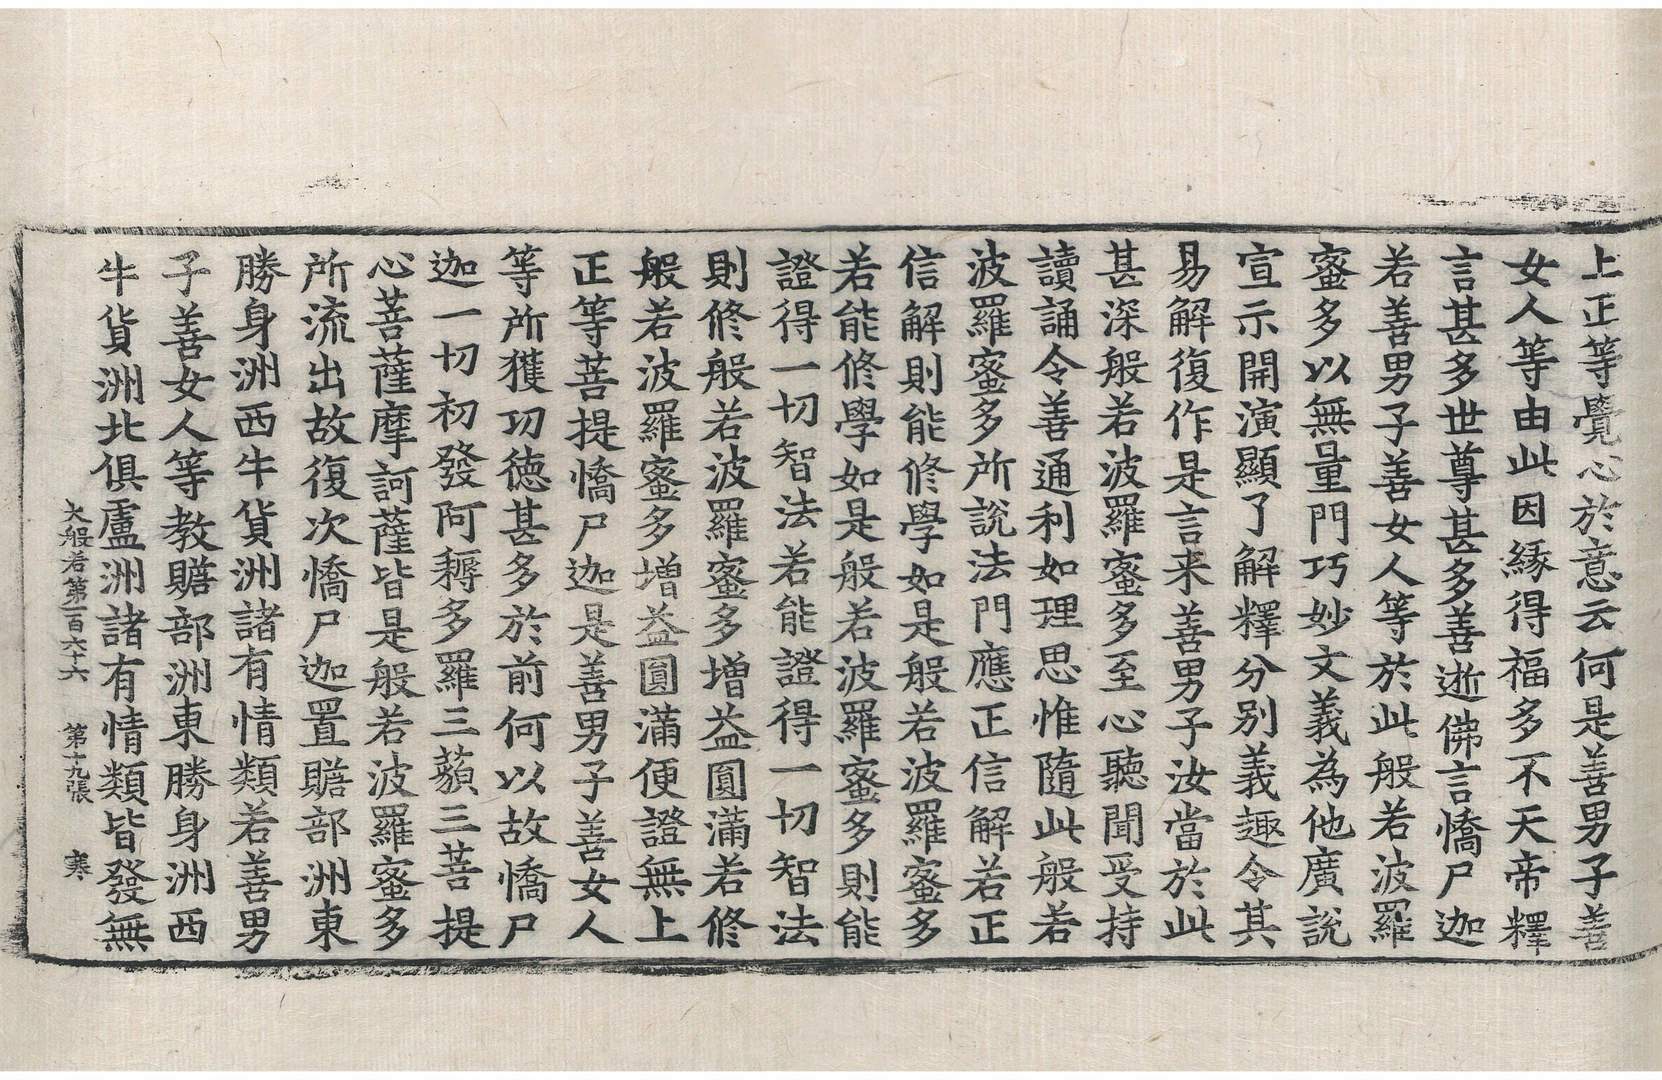 上正等覺心於意云何是善男子善
女人等由此因緣得福多不天帝釋
言甚多世尊甚多善逝佛言憍尸迦
若善男子善女人等於此般若波羅
蜜多以無量門巧妙文義為他廣說
宣示開演顯了解釋分別義趣令其
易解復作是言来善男子汝當於此
甚深般若波羅蜜多至心聽聞受持
讀誦令善通利如理思惟隨此般若
波羅蜜多所說法門應正信解若正
信解則能修學如是般若波羅蜜多
若能修學如是般若波羅蜜多則能
證得一切智法若能證得一切智法
則修般若波羅蜜多增益圓滿若修
般若波羅蜜多增益圓滿便證無上
正等菩提憍尸迦是善男子善女人
等所獲功德甚多於前何以故憍尸
迦一切初發阿耨多羅三藐三菩提
心菩薩摩訶薩皆是般若波羅蜜多
所流出故復次憍尸迦置贍部洲東
勝身洲西牛貨洲諸有情類若善男
子善女人等教贍部洲東勝身洲西
牛貨洲北俱盧洲諸有情類皆發無
大般若第一百六十六 第十九張 寒